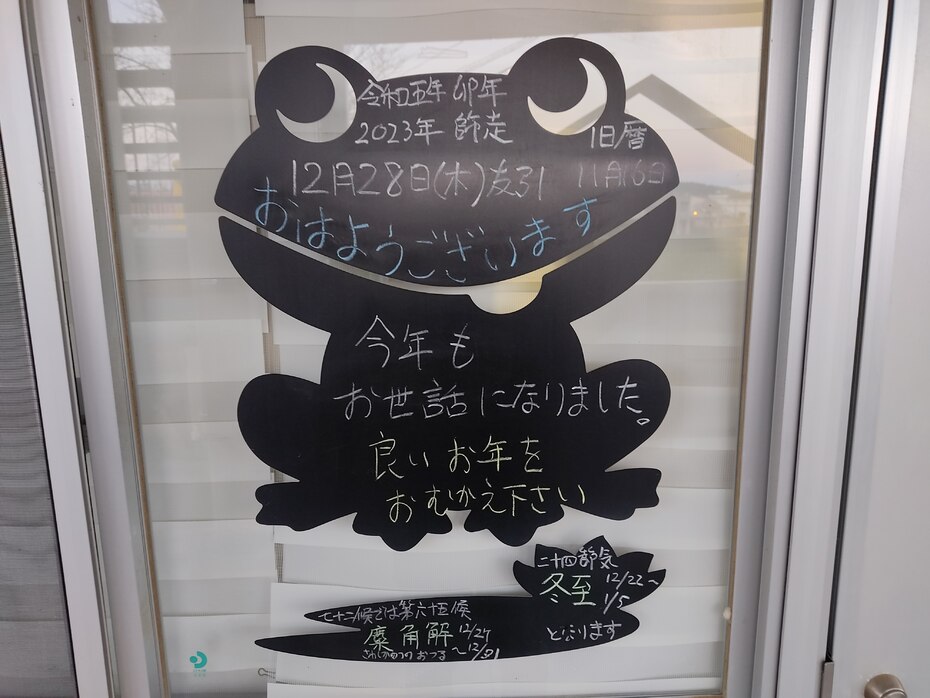 令和五年 卯年
2023年 師走
旧暦
12月28日(木)友引 11月16日
おはようございます
今年も
お世話になりました。
良いお年を
おむかえ下さい
二十四節気
冬至 12/22～
1/5
となります
七十二候では第六十五候
麋角解 12/27
さわしかのつのおつる ～12/31